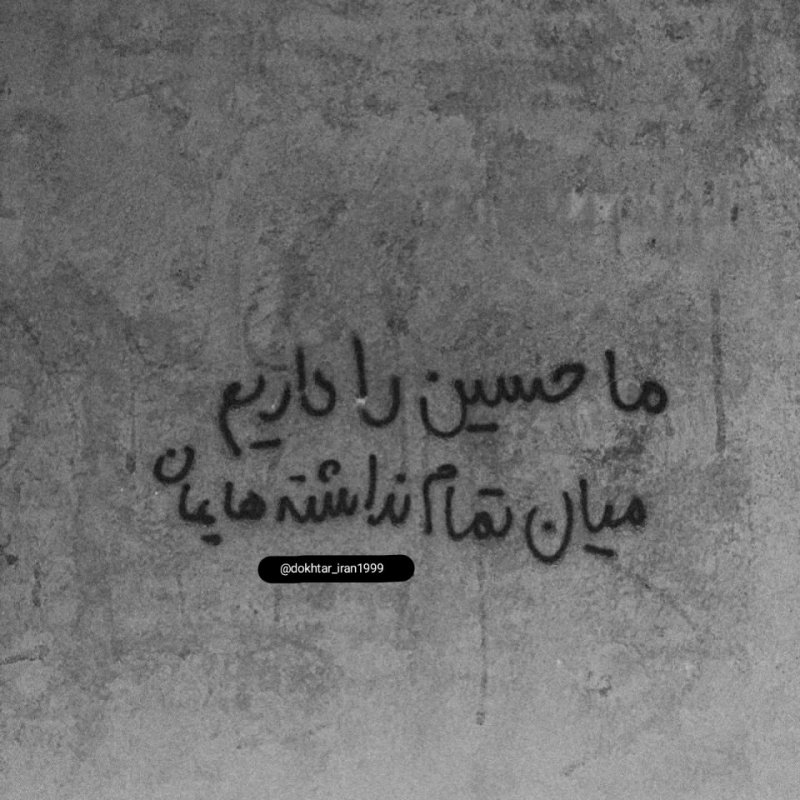 ما حسین را داریم
میان تمام نداشته هایمان
@dokhtar_iran1999